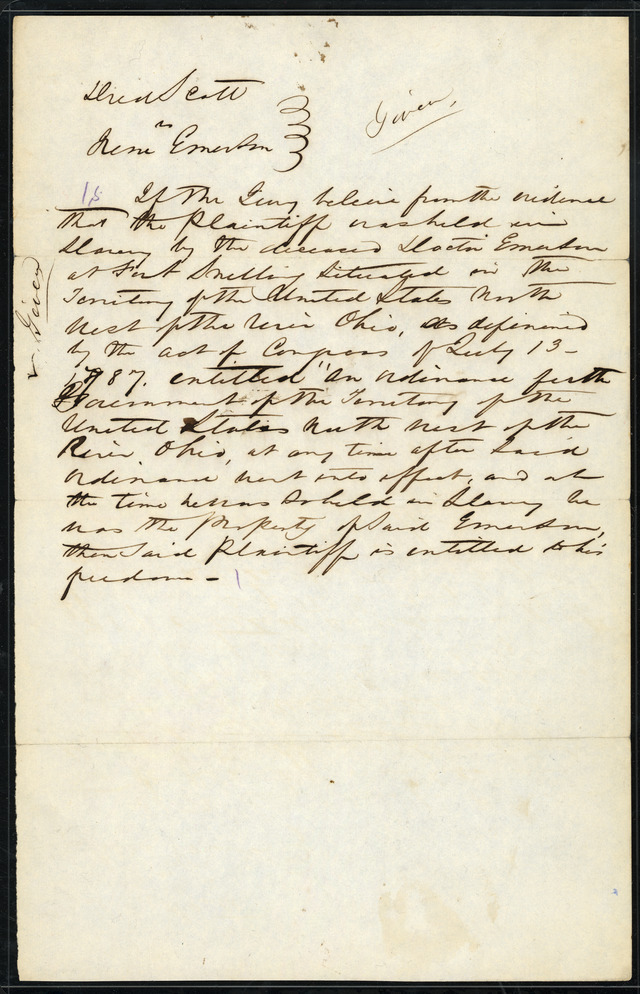 Dred Scott
vs
Irene Emerson
Given,
1st If the Jury believe from the evidence
that the Plaintiff was held in
Slavery by the deceased Doctor Emerson
at Fort Snelling Situated in the
Territory of the United States North
West of the river Ohio, as defined
by the act of Congress of July 13
1787. entitled "An ordinance for the
Government of the Territory of the
United States North West of the
River Ohio, at any time after Said
ordinance went into effect, and at
the time he was so held in Slavery he
was the Property of Said Emerson,
then Said Plaintiff is entitled to his
freedom –
Given